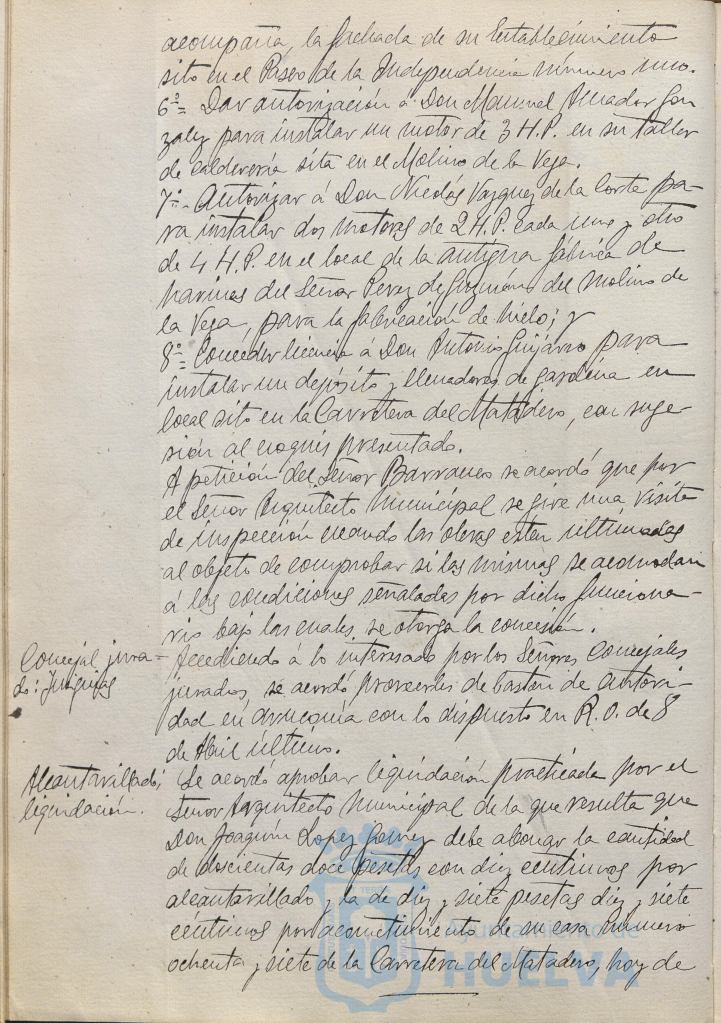 acompaña, la fachada de su Establecimiento
sito en el Paseo de la Independencia número uno.
6º = Dar autorización á Don Manuel Amador Gon
zalez para instalar un motor de 3 H.P. en su taller
de calderería sita en el Molino de la Vega.
7º - Autorizar á Don Nicolás Vazquez de la Corte pa-
ra instalar dos motores de 2 H.P. cada uno y otro
de 4 H.P. en el local de la antigua fábrica de
harinas del Señor Perez de Guzmán del Molino de
la Vega, para la fabricación de hielo; y
8º = Conceder licencia á Don Antonio Guijarro para
instalar un depósito y llenadores de gasolina en
local sito en la Carretera del Matadero, con suge-
sión al croquis presentado.
A petición del Señor Barranco se acordó que por
el Señor Arquitecto Municipal se gire una visita
de inspección cuando las obras esten ultimadas
al objeto de comprobar si las mismas se acomodan
á las condiciones señaladas por dicho funciona-
rio bajo las cuales se otorga la concesión.
Concejal jura-
do: Insignias
Accediendo á lo interesado por los Señores Concejales
jurados, se acordó proveerles de bastón de autori-
dad en armonía con lo dispuesto en R.O. de 8
de Abril último.
Alcantarillado;
liquidación.
Se acordó aprobar liquidación practicada por el
Señor Arquitecto Municipal de la que resulta que
Don Joaquín Lopez Gomez debe abonar la cantidad
de doscientas doce pesetas con diez centimos por
alcantarillado y la de diez y siete pesetas diez y siete
céntimos por acometimiento de su casa número
ochenta y siete de la Carretera del Matadero, hoy de
Ayuntamiento de
HUELVA